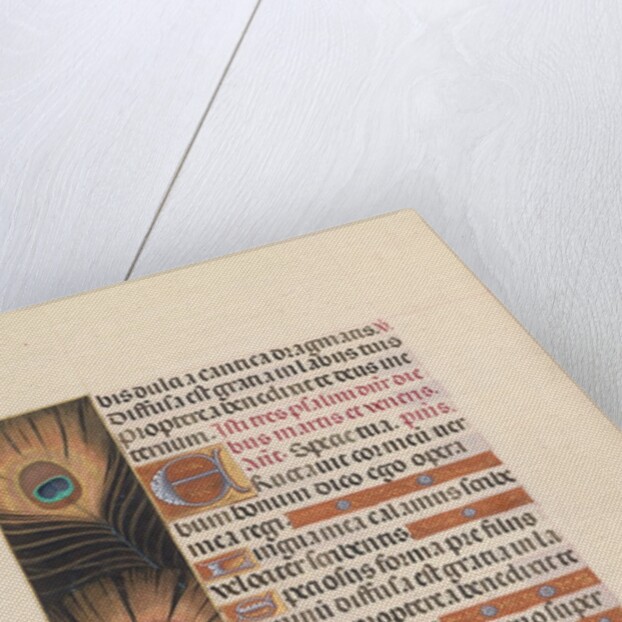 bis dulcia cantica dragmatis. V.
Diffusa est gratia in labiis tuis
propterea benedixit te deus in e
ternum. Isti tres psalmi dnr die
bus martis et veneris.
Ane. Specie tua. pmus.
Eructavit cor meum ver
bum bonum dico ego opera
mea regi.
Lingua mea calamus scribe
velociter scribentis.
Speciosus forma pre filiis
diffusa est gratia in la
propterea benedixit te
super